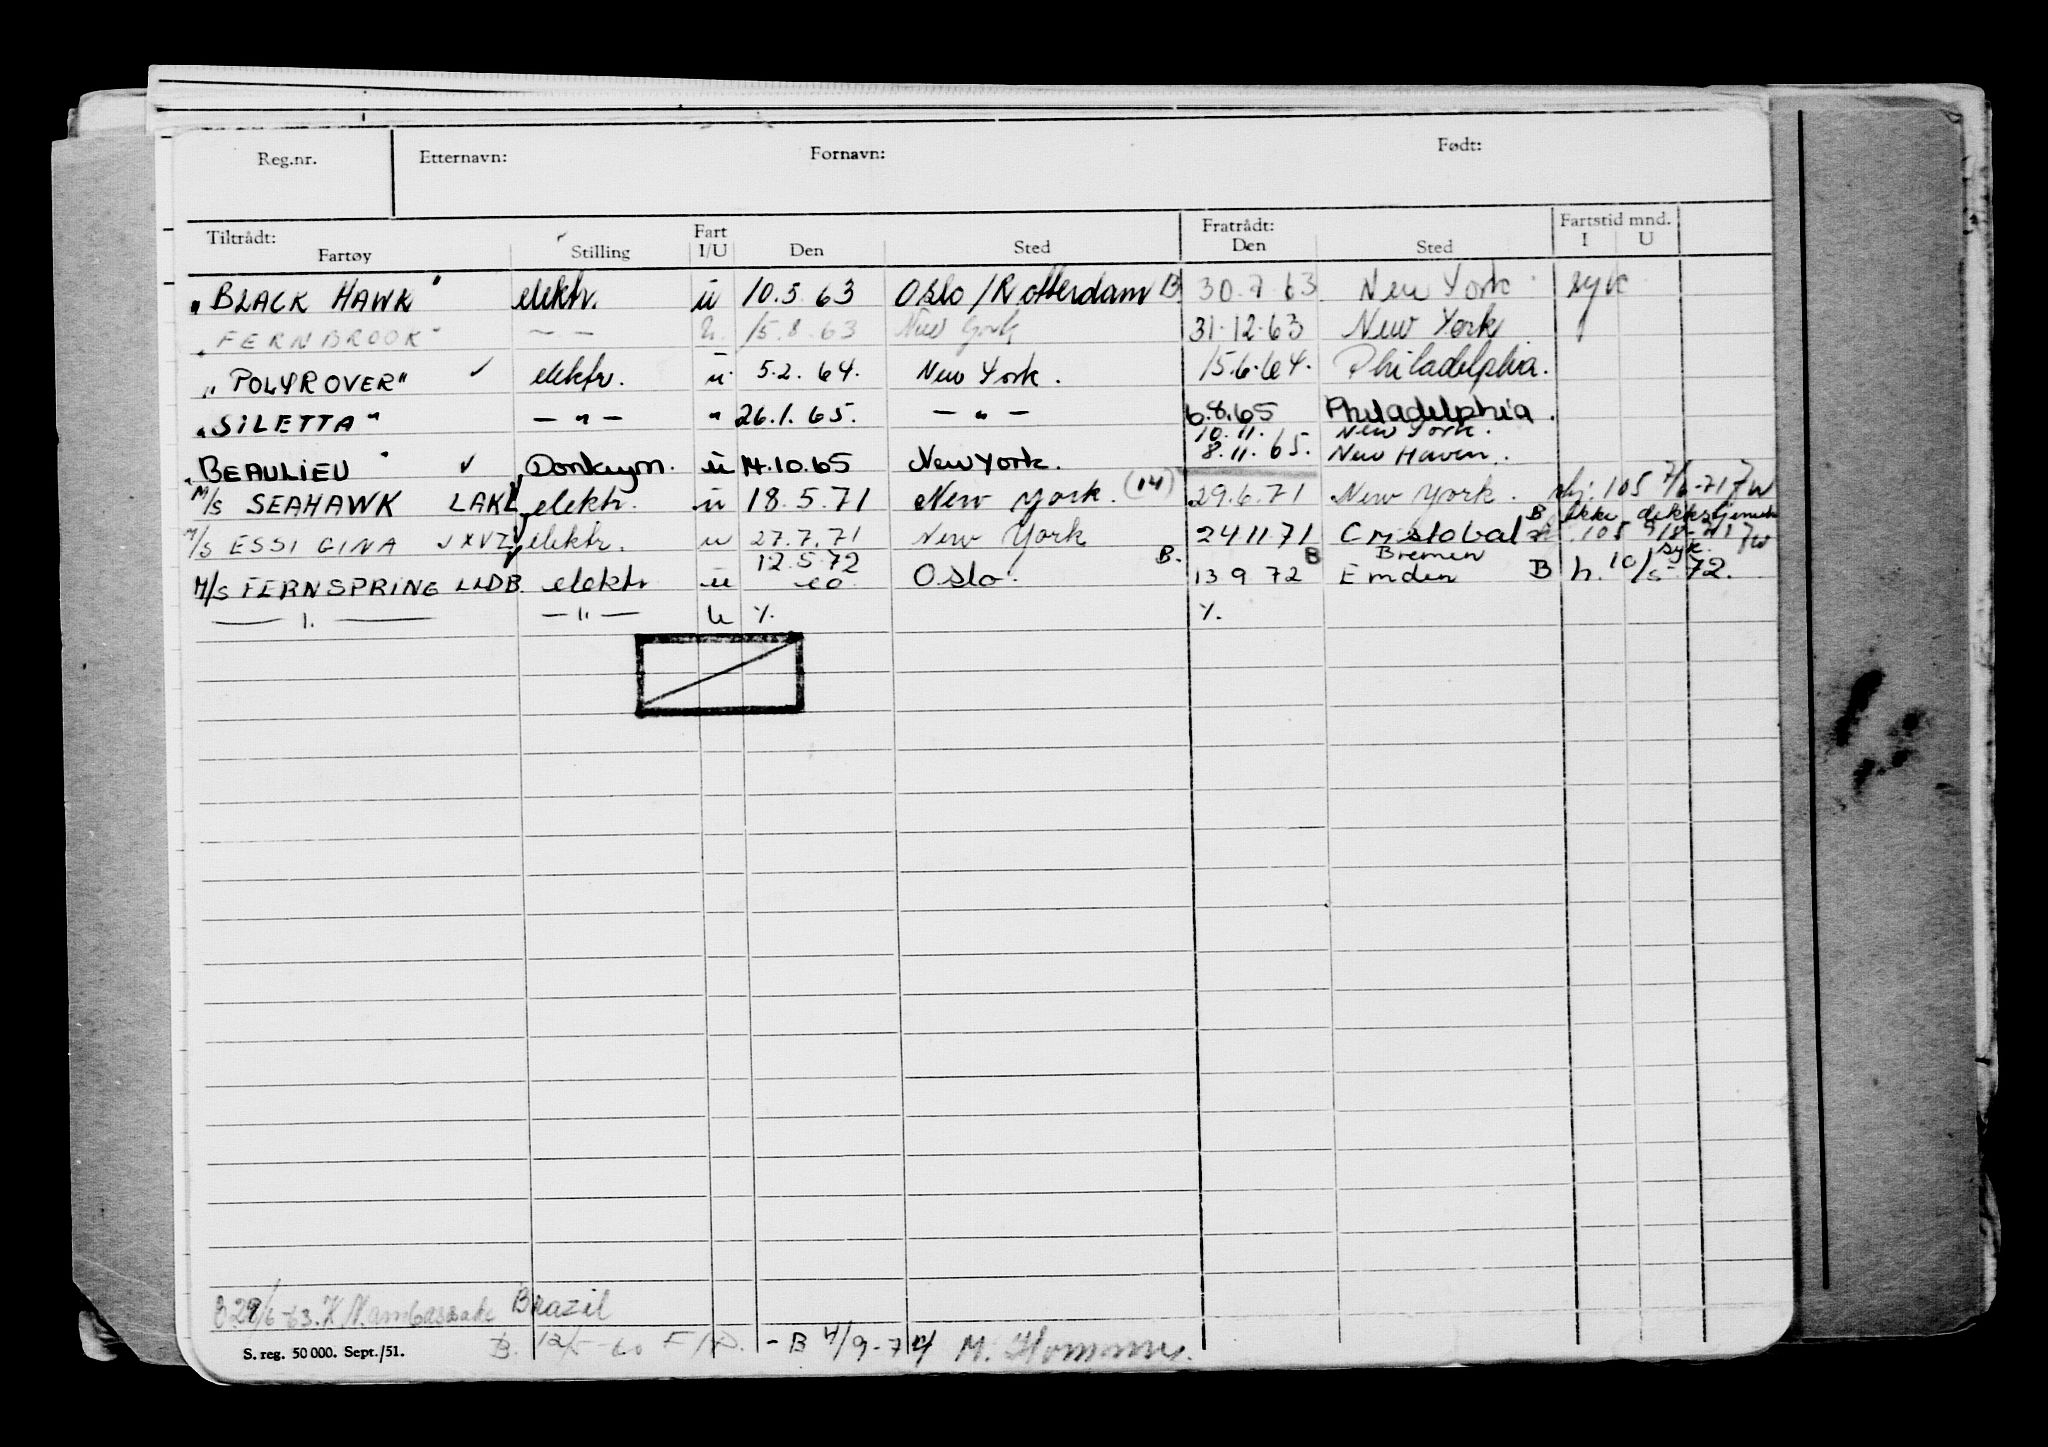 Reg.nr. Etternavn: Fornavn: Født:
Tiltrådt: Fart Fratrådt: Fartstid mnd.
Fartøy Stilling I/U Den Sted Den Sted I U
"BLACK HAWK" elektr. u 10.5.63 Oslo/Rotterdam B 30.7.63 New York syk
"FERNBROOK" — — u. 15.8.63 New York 31.12.63 New York
"POLYROVER" ✓ elektr. u 5.2.64. New York. 15.6.64. Philadelphia.
"SILETTA" — " — " 26.1.65. — " — 6.8.65 Philadelphia.
10.11. New York.
"BEAULIEU" ✓ Donkeym. u 14.10.65 New York. 8.11.65. New Haven.
M/S SEAHAWK elektr. u 18.5.71 New York. (14) 29.6.71 New York. 105 7/6-71
B ikke
M/S ESSI GINA JXVZ elektr. u 27.7.71 New York 24.11.71 Cristobal 105
12.5.72 B. B Bremen syk.
M/S FERNSPRING LLDB elektr u Oslo. 13 9 72 Emden B h. 10/5-72.
— " — — " — u %. %.
29/6-63. Brazil
S. reg. 50 000. Sept./51. B. 12/5-60 - B 4/9-74 M.